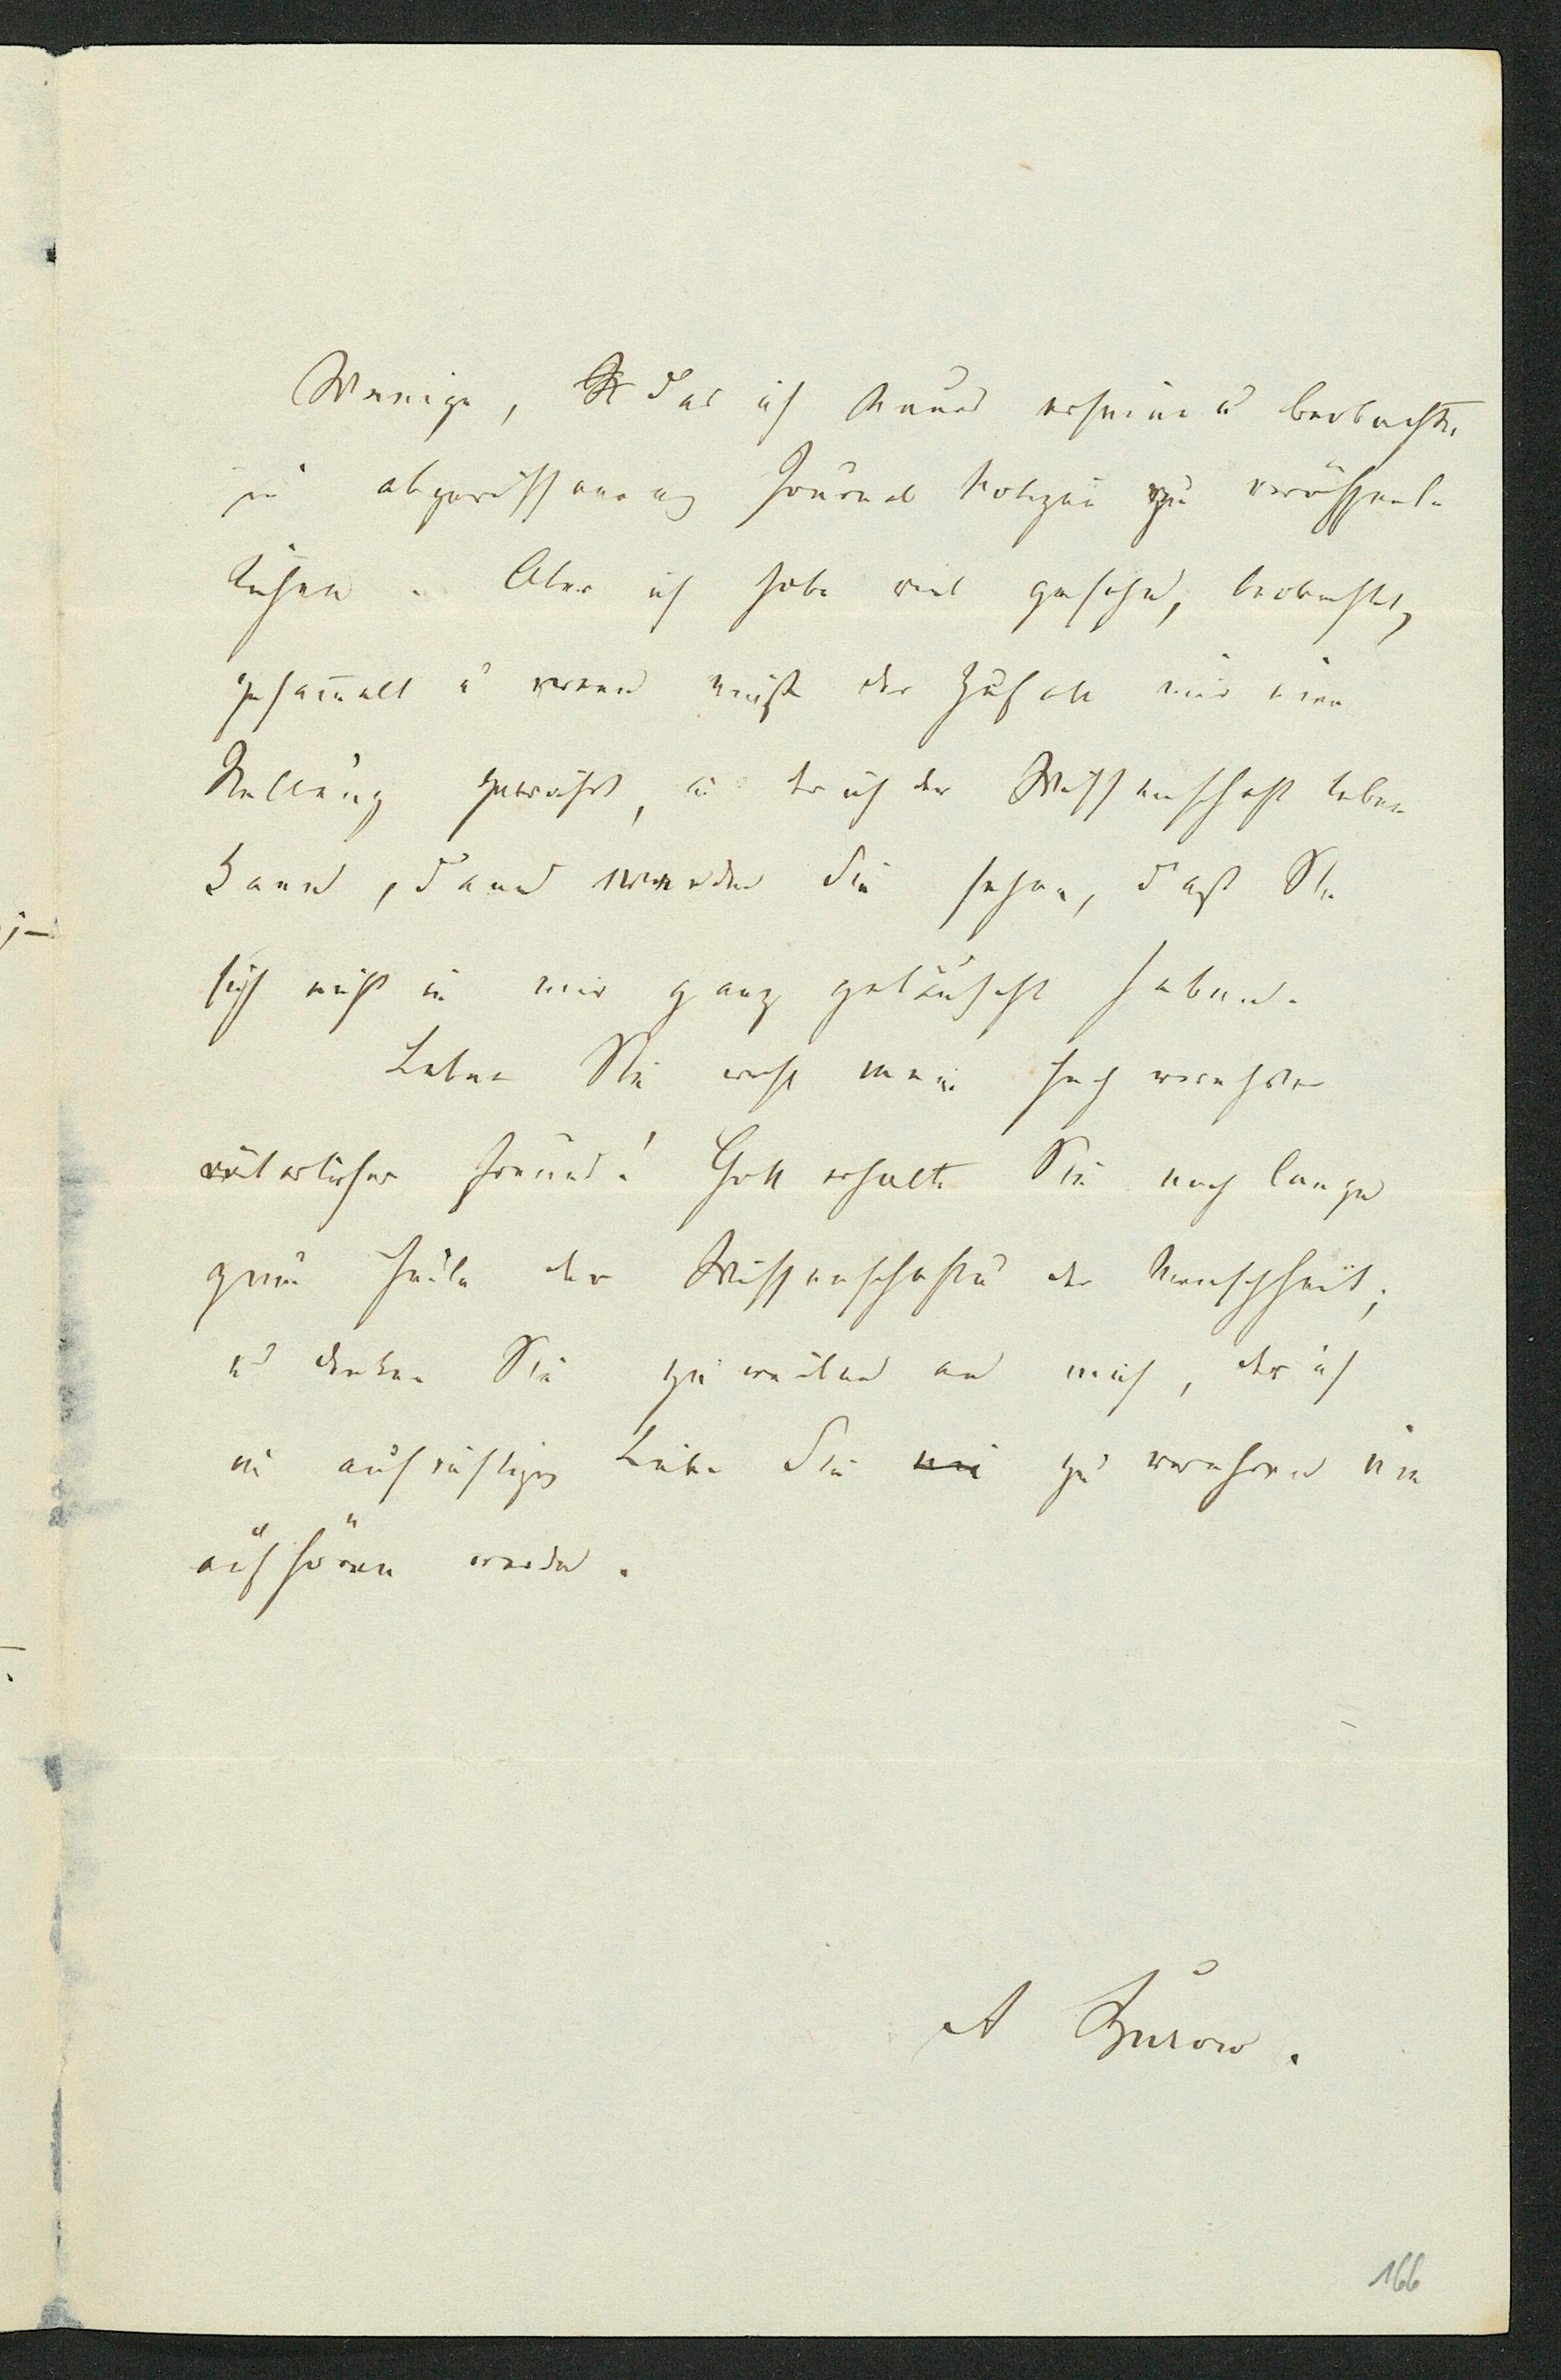 Wenige, das ich Neues erfinde u beobachte,
in abgerissenen Journal Notizen zu veröffent-
lichen. Aber ich habe viel gesehn, beobachtet,
gesam̅elt u wenn einst der Zufall mir eine
Stellung gewährt, in der ich der Wissenschaft leben
kann, dann werden Sie sehen, daß Sie
sich nicht in mir ganz getäuscht haben.
Leben Sie wohl mein hochverehrter
väterlicher Freund! Gott erhalte Sie noch lange
zum Heile der Wissenschaft u der Menschheit;
u denken Sie zuweilen an mich, der ich
in aufrichtiger Liebe Sie nie zu verehren nie
aufhören werde.
A Burow.
166